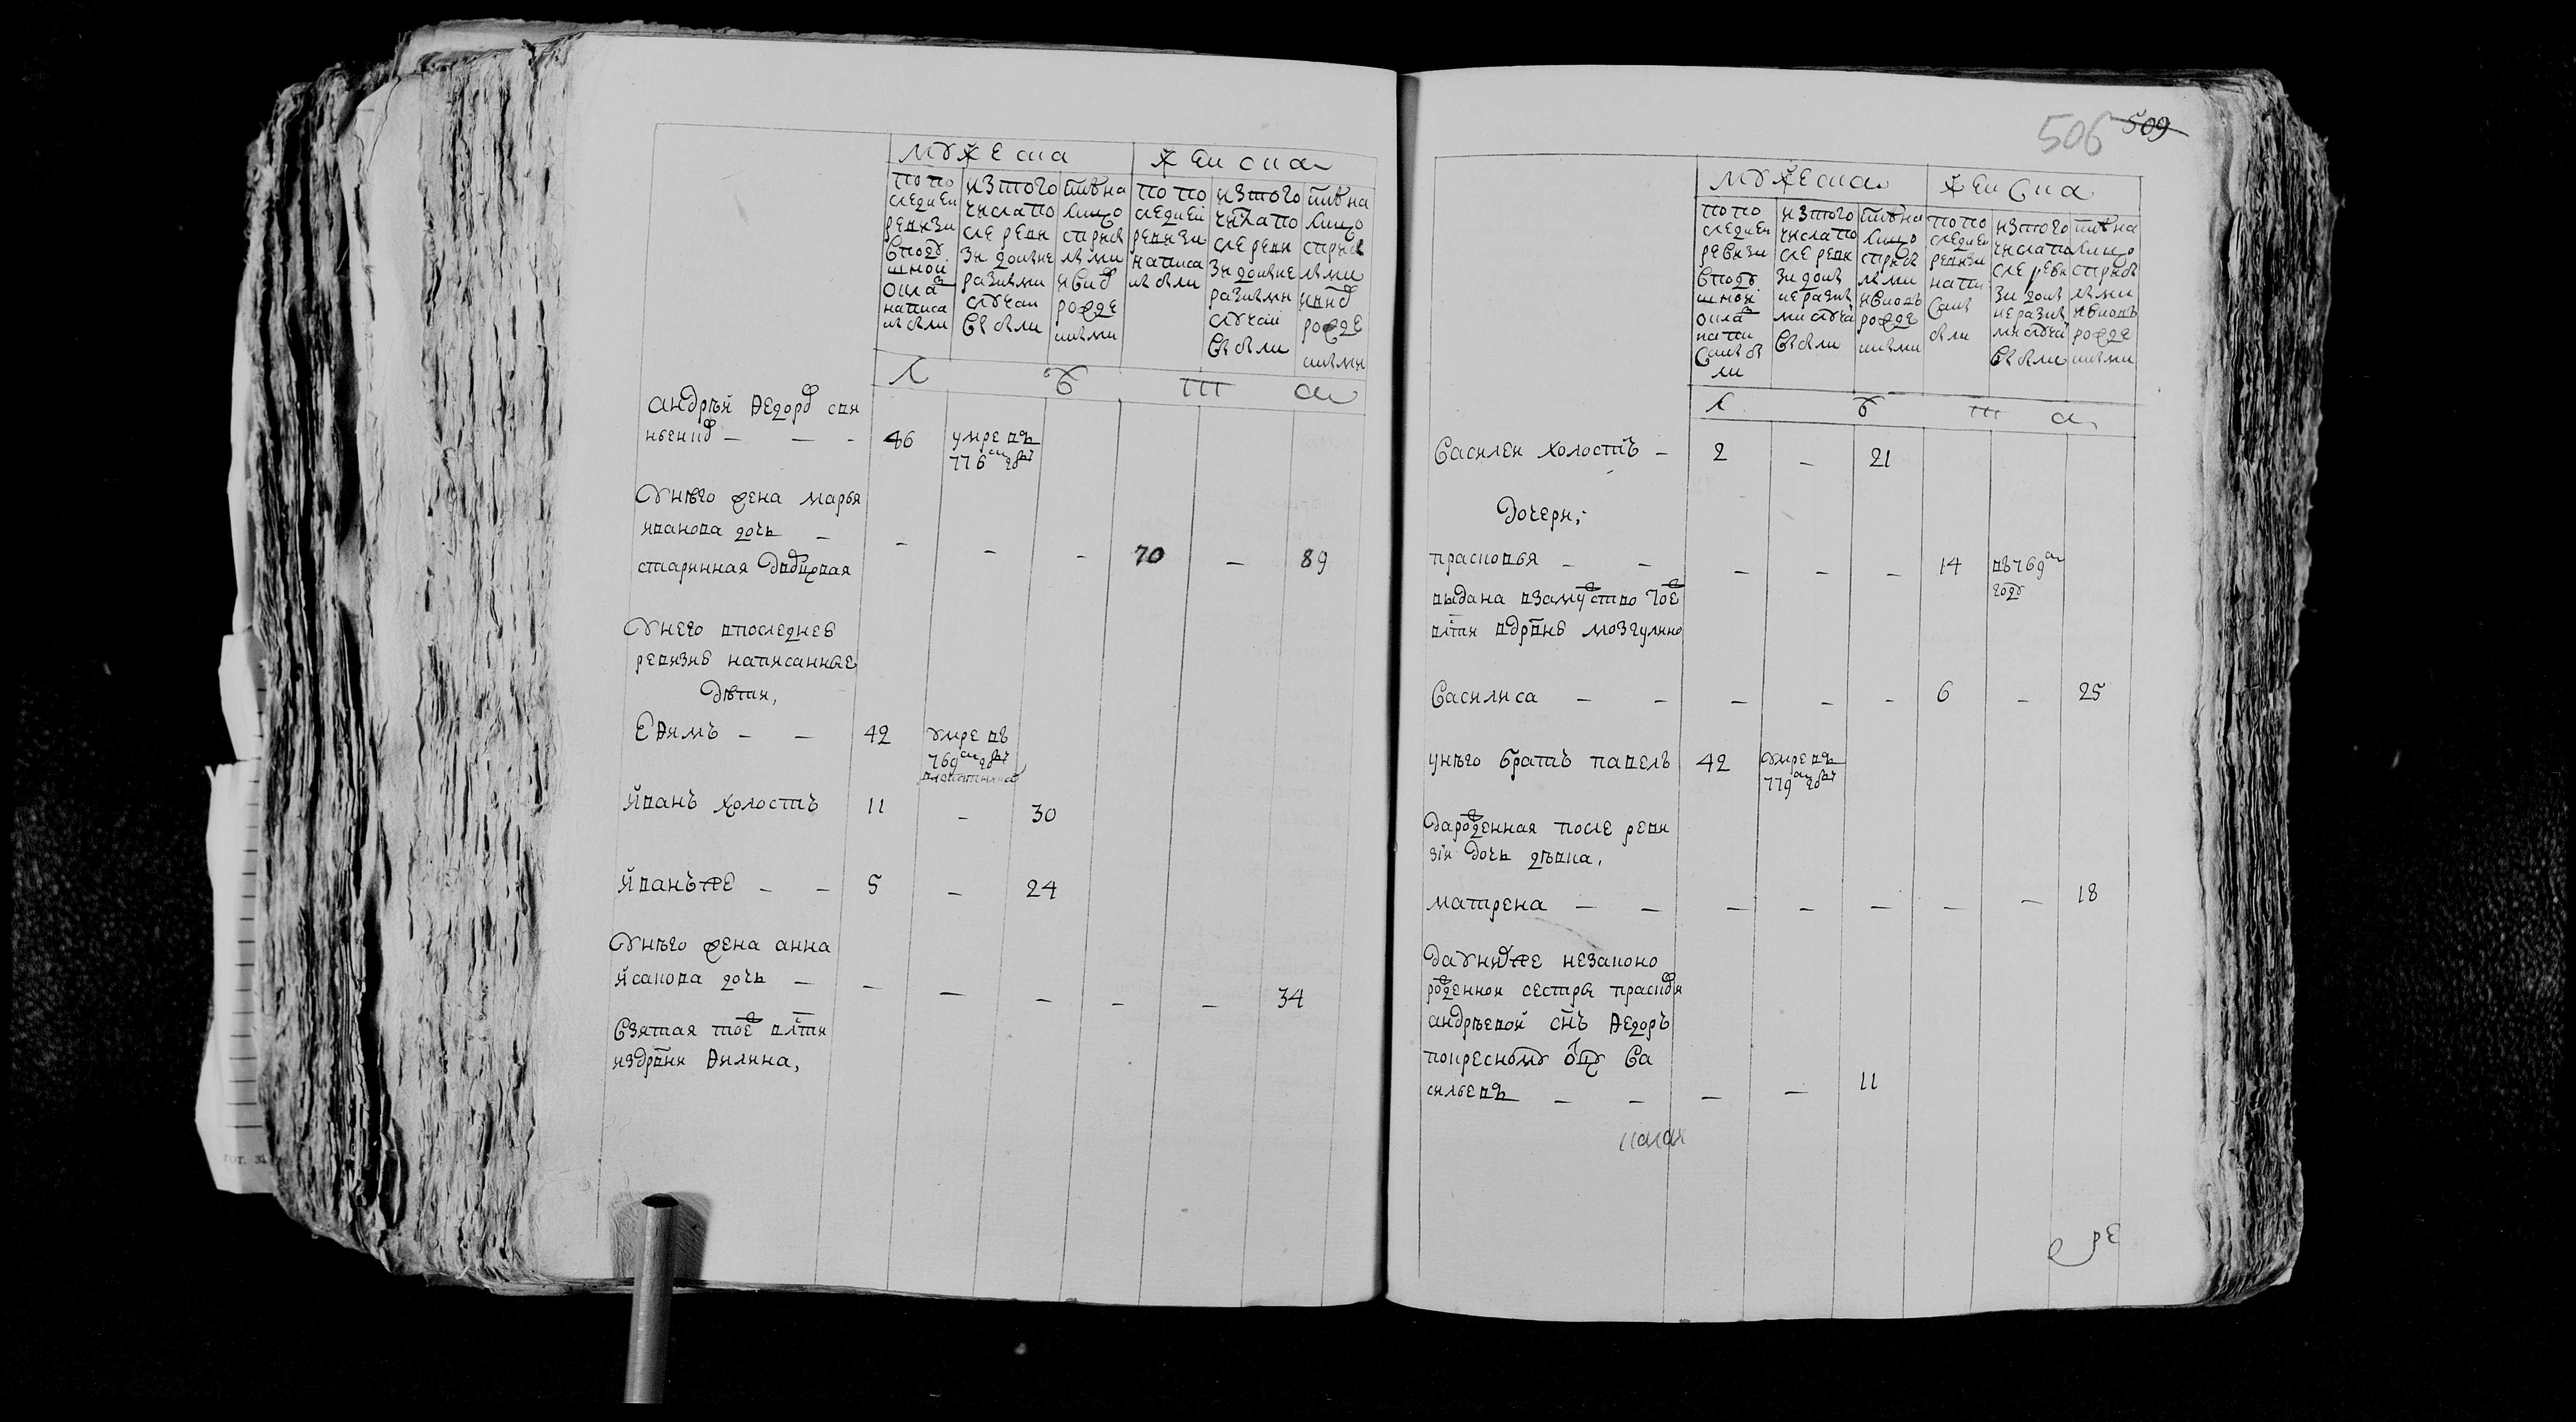 мужеска
женска
по по
следней
ревизи
в поду
шной
окла
писа
ны были
из того
числа по
сле реви
зи до ны не
разными
случаи
выбыли
ныне на
лицо
с при
лыми
и вно
рожде
нными
по по
следней
ревизи
написа
ны были
из того
числа по
сле реви
зи до ны не
разными
случаи
выбыли
ныне на
лицо
с при
лыми
рожде
нными
л е т а
андрей Федоровъ сын
46
умре въ
776м году
у него жена марья
иванова дочь —
старинная
— — — 70 — 89
у него в последней
ревизие написанные
дети,
Ефимъ — —
42
умре въ
769м году
Иванъ холостъ
11 — 30
Иванъ же — —
5 — 24
у него жена анна
Исакова дочь —
— — — — — 34
взятая тоеж вотч
из дрвни Филина,
506 509
мужеска
женска
по по
следней
ревизи
в поду
шной
окла
напи
саны бы
ли
из того
числа по
сле реви
зи до ны
не разны
ми случа
выбыли
лицо
с прибы
лыми
и вновь
рожде
нными
по по
следней
ревизи
напи
саны
были
из того
числа по
сле реви
зи до ны
не разны
ми случа
выбыли
лицо
с прибы
лыми
и вновь
рожде
нными
л е т а
Василей холостъ —
2 — 21
дочери:
прасковья — —
— — — 14
въ 769м
году
выдана взамужство тоеж
вотчи в дрвне мозгулино
Василиса — —
— — — 6 — 25
у него братъ павелъ
42
умре въ
779м году
да рожденная после реви
зіи дочь девка,
матрена — —
— — — — — 18
да у них же незаконо
рожденной сестры прасков
андреевой снъ Федоръ
по кресному отцу Ва
сильевъ — —
— — 11